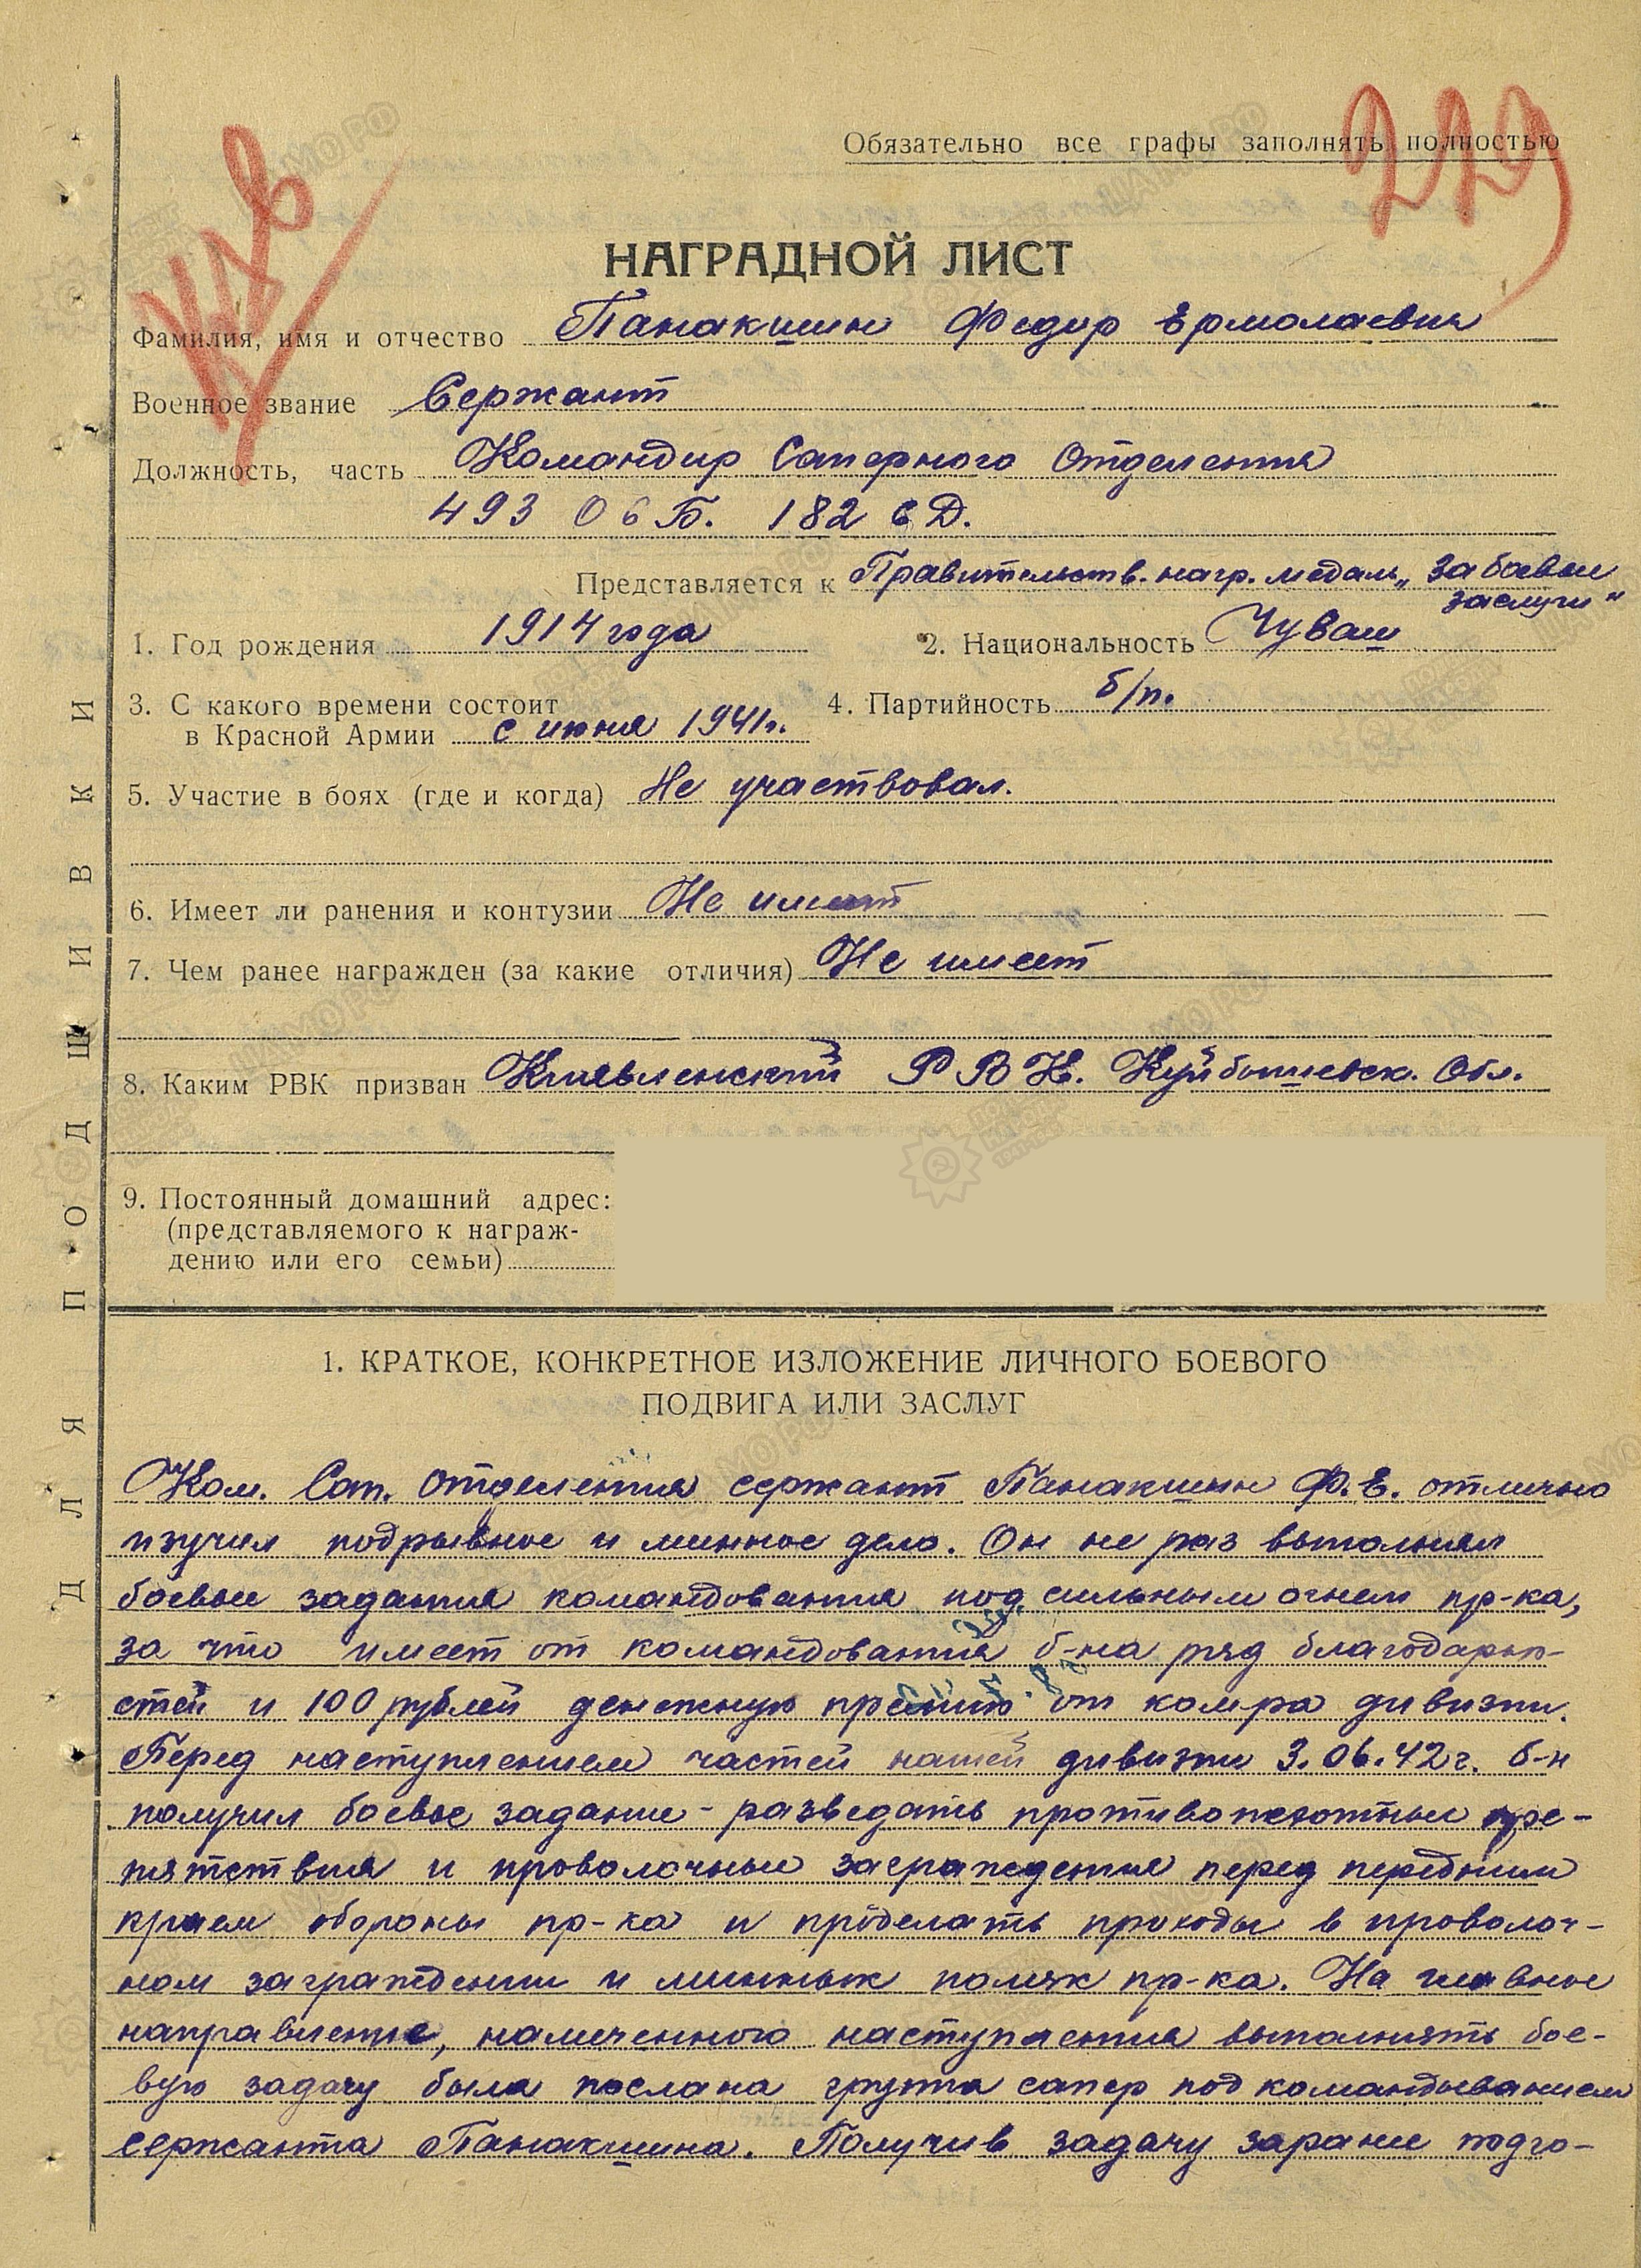 Обязательно все графы заполнять полностью
229
НАГРАДНОЙ ЛИСТ
Фамилия, имя и отчество Панакшин Федор Ермолаевич
Военное звание Сержант
Должность, часть Командир Саперного Отделения
493 ОСБ. 182 СД.
Представляется к Правительств. нагр. медаль „За боевые
заслуги"
1. Год рождения 1914 года 2. Национальность Чуваш
3. С какого времени состоит
в Красной Армии с июня 1941г. 4. Партийность б/п.
5. Участие в боях (где и когда) Не участвовал.
6. Имеет ли ранения и контузии Не имеет
7. Чем ранее награжден (за какие отличия) Не имеет
8. Каким РВК призван Клявлинский РВК. Куйбышевск. Обл.
9. Постоянный домашний адрес:
(представляемого к награж-
дению или его семьи)
ДЛЯ ПОДШИВКИ
1. КРАТКОЕ, КОНКРЕТНОЕ ИЗЛОЖЕНИЕ ЛИЧНОГО БОЕВОГО
ПОДВИГА ИЛИ ЗАСЛУГ
Ком. Сап. Отделения сержант Панакшин Ф.Е. отлично
изучил подрывное и минное дело. Он не раз выполнял
боевые задания командования под сильным огнем пр-ка,
за что имеет от командования б-на ряд благодарно-
стей и 100 рублей денежную премию от комра дивизии.
Перед наступлением частей нашей дивизии 3.06.42г. б-н
получил боевое задание - разведать противопехотные пре-
пятствия и проволочные заграждения перед передним
краем обороны пр-ка и проделать проходы в проволоч-
ном заграждении и минных полях пр-ка. На главное
направление, намеченного наступления выполнять бое-
вую задачу была послана группа сапер под командыванием
сержанта Панакшина. Получив задачу зарание подго-